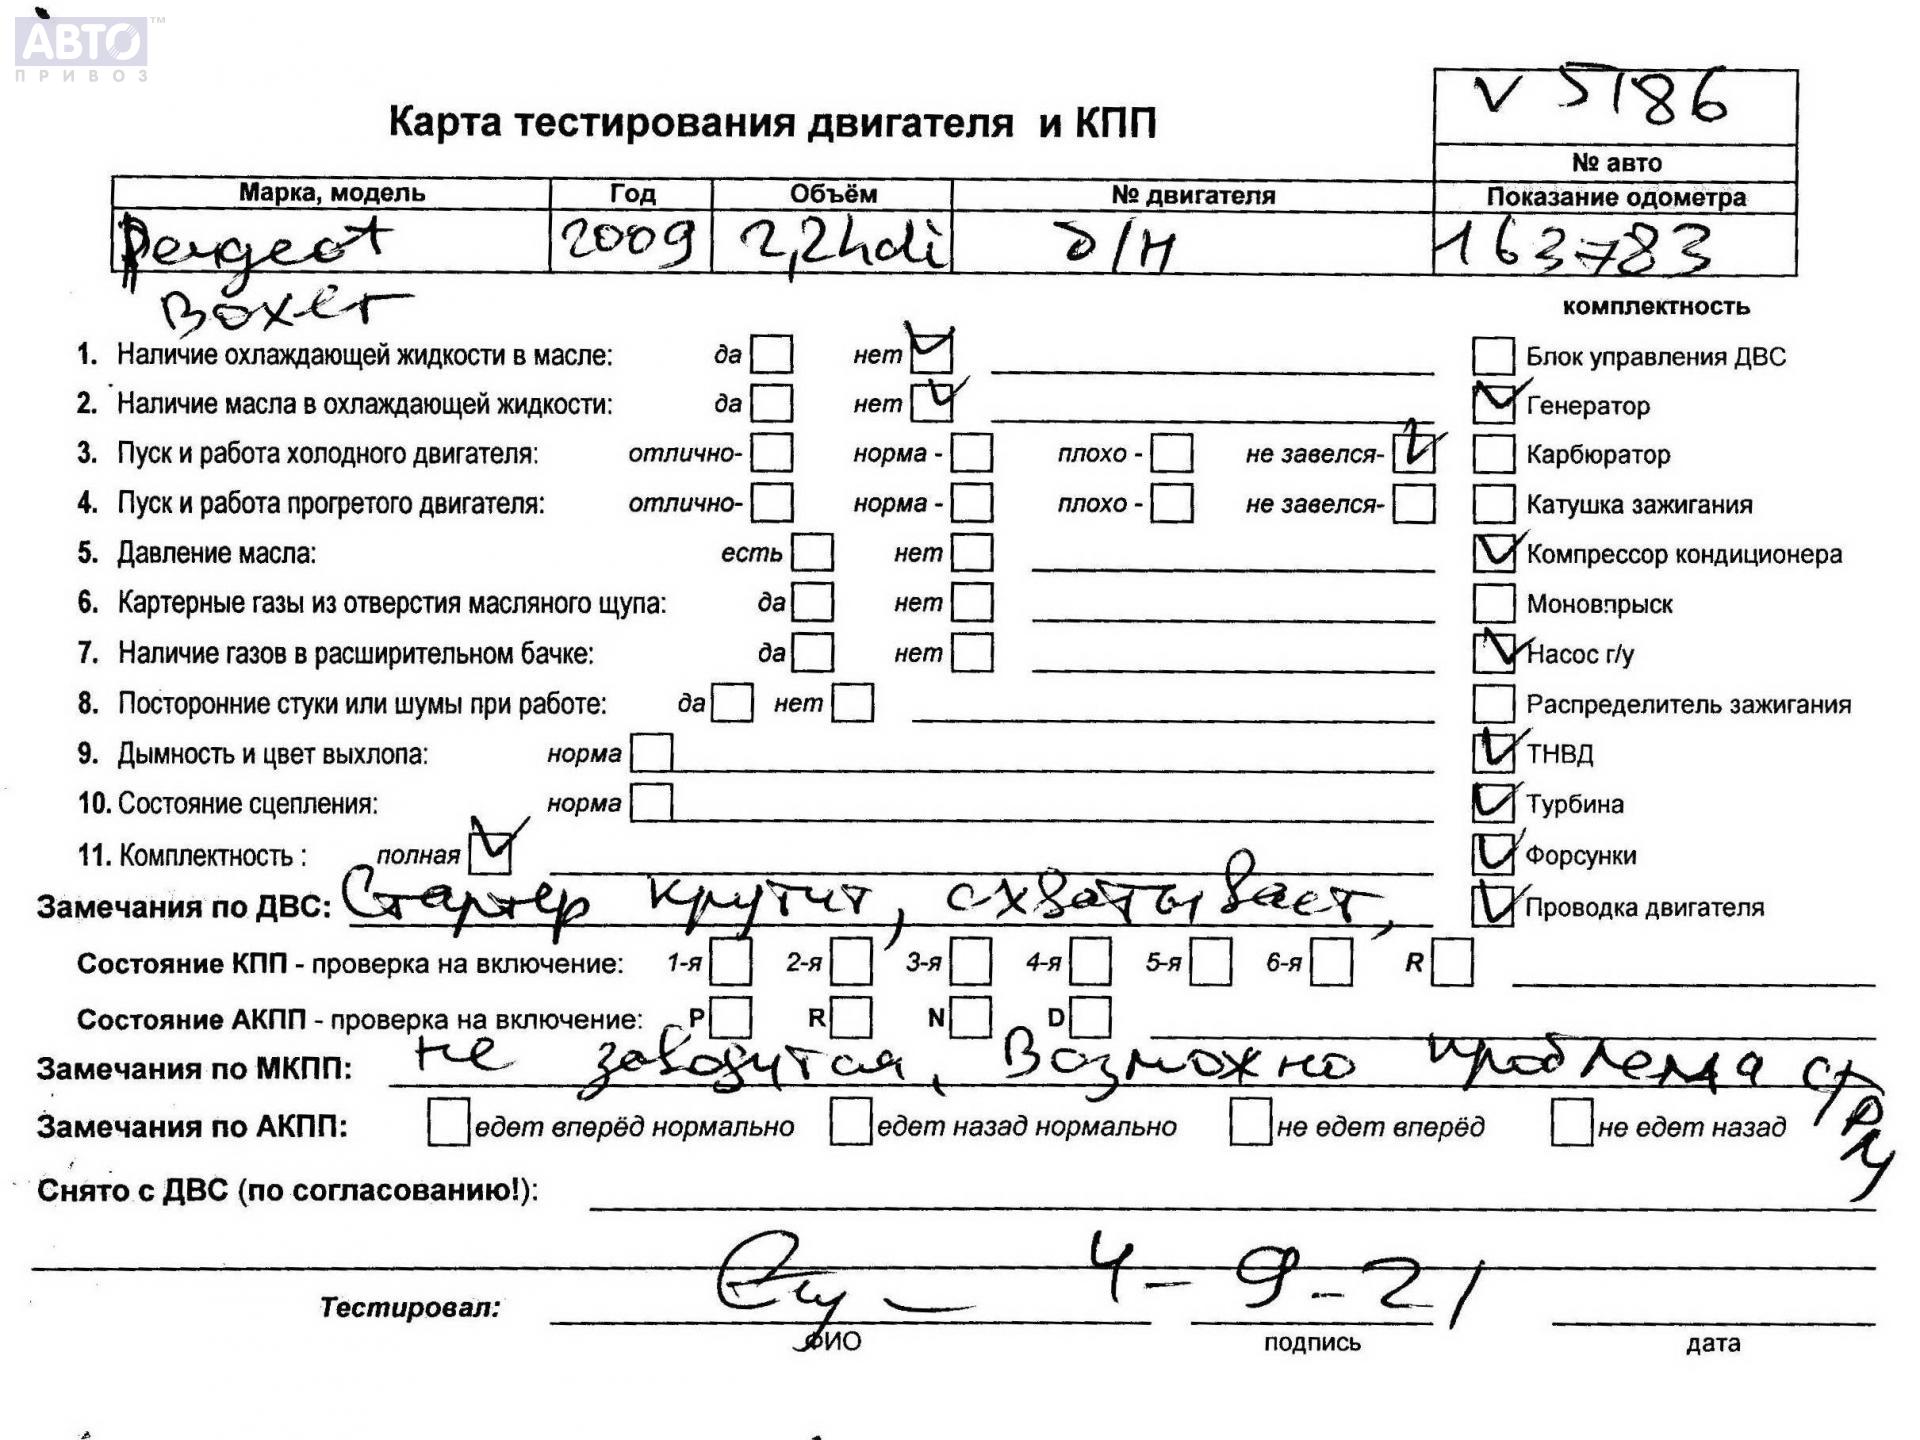 АВТО™
ПРИВОЗ
V 5186
Карта тестирования двигателя и КПП
№ авто
Марка, модель Год Объём № двигателя Показание одометра
Peugeot 2009 2,2hdi б/н 163783
Boxer
комплектность
1. Наличие охлаждающей жидкости в масле: да нет Блок управления ДВС
2. Наличие масла в охлаждающей жидкости: да нет Генератор
3. Пуск и работа холодного двигателя: отлично- норма - плохо - не завелся- Карбюратор
4. Пуск и работа прогретого двигателя: отлично- норма - плохо - не завелся- Катушка зажигания
5. Давление масла: есть нет Компрессор кондиционера
6. Картерные газы из отверстия масляного щупа: да нет Моновпрыск
7. Наличие газов в расширительном бачке: да нет Насос г/у
8. Посторонние стуки или шумы при работе: да нет Распределитель зажигания
9. Дымность и цвет выхлопа: норма ТНВД
10. Состояние сцепления: норма Турбина
11. Комплектность : полная Форсунки
Замечания по ДВС: Стартер крутит, схватывает, Проводка двигателя
Состояние КПП - проверка на включение: 1-я 2-я 3-я 4-я 5-я 6-я R
Состояние АКПП - проверка на включение: P R N D
Замечания по МКПП: не заводится, возможно проблема с
Замечания по АКПП: едет вперёд нормально едет назад нормально не едет вперёд не едет назад
Снято с ДВС (по согласованию!):
Тестировал: 4-9-21
ФИО подпись дата